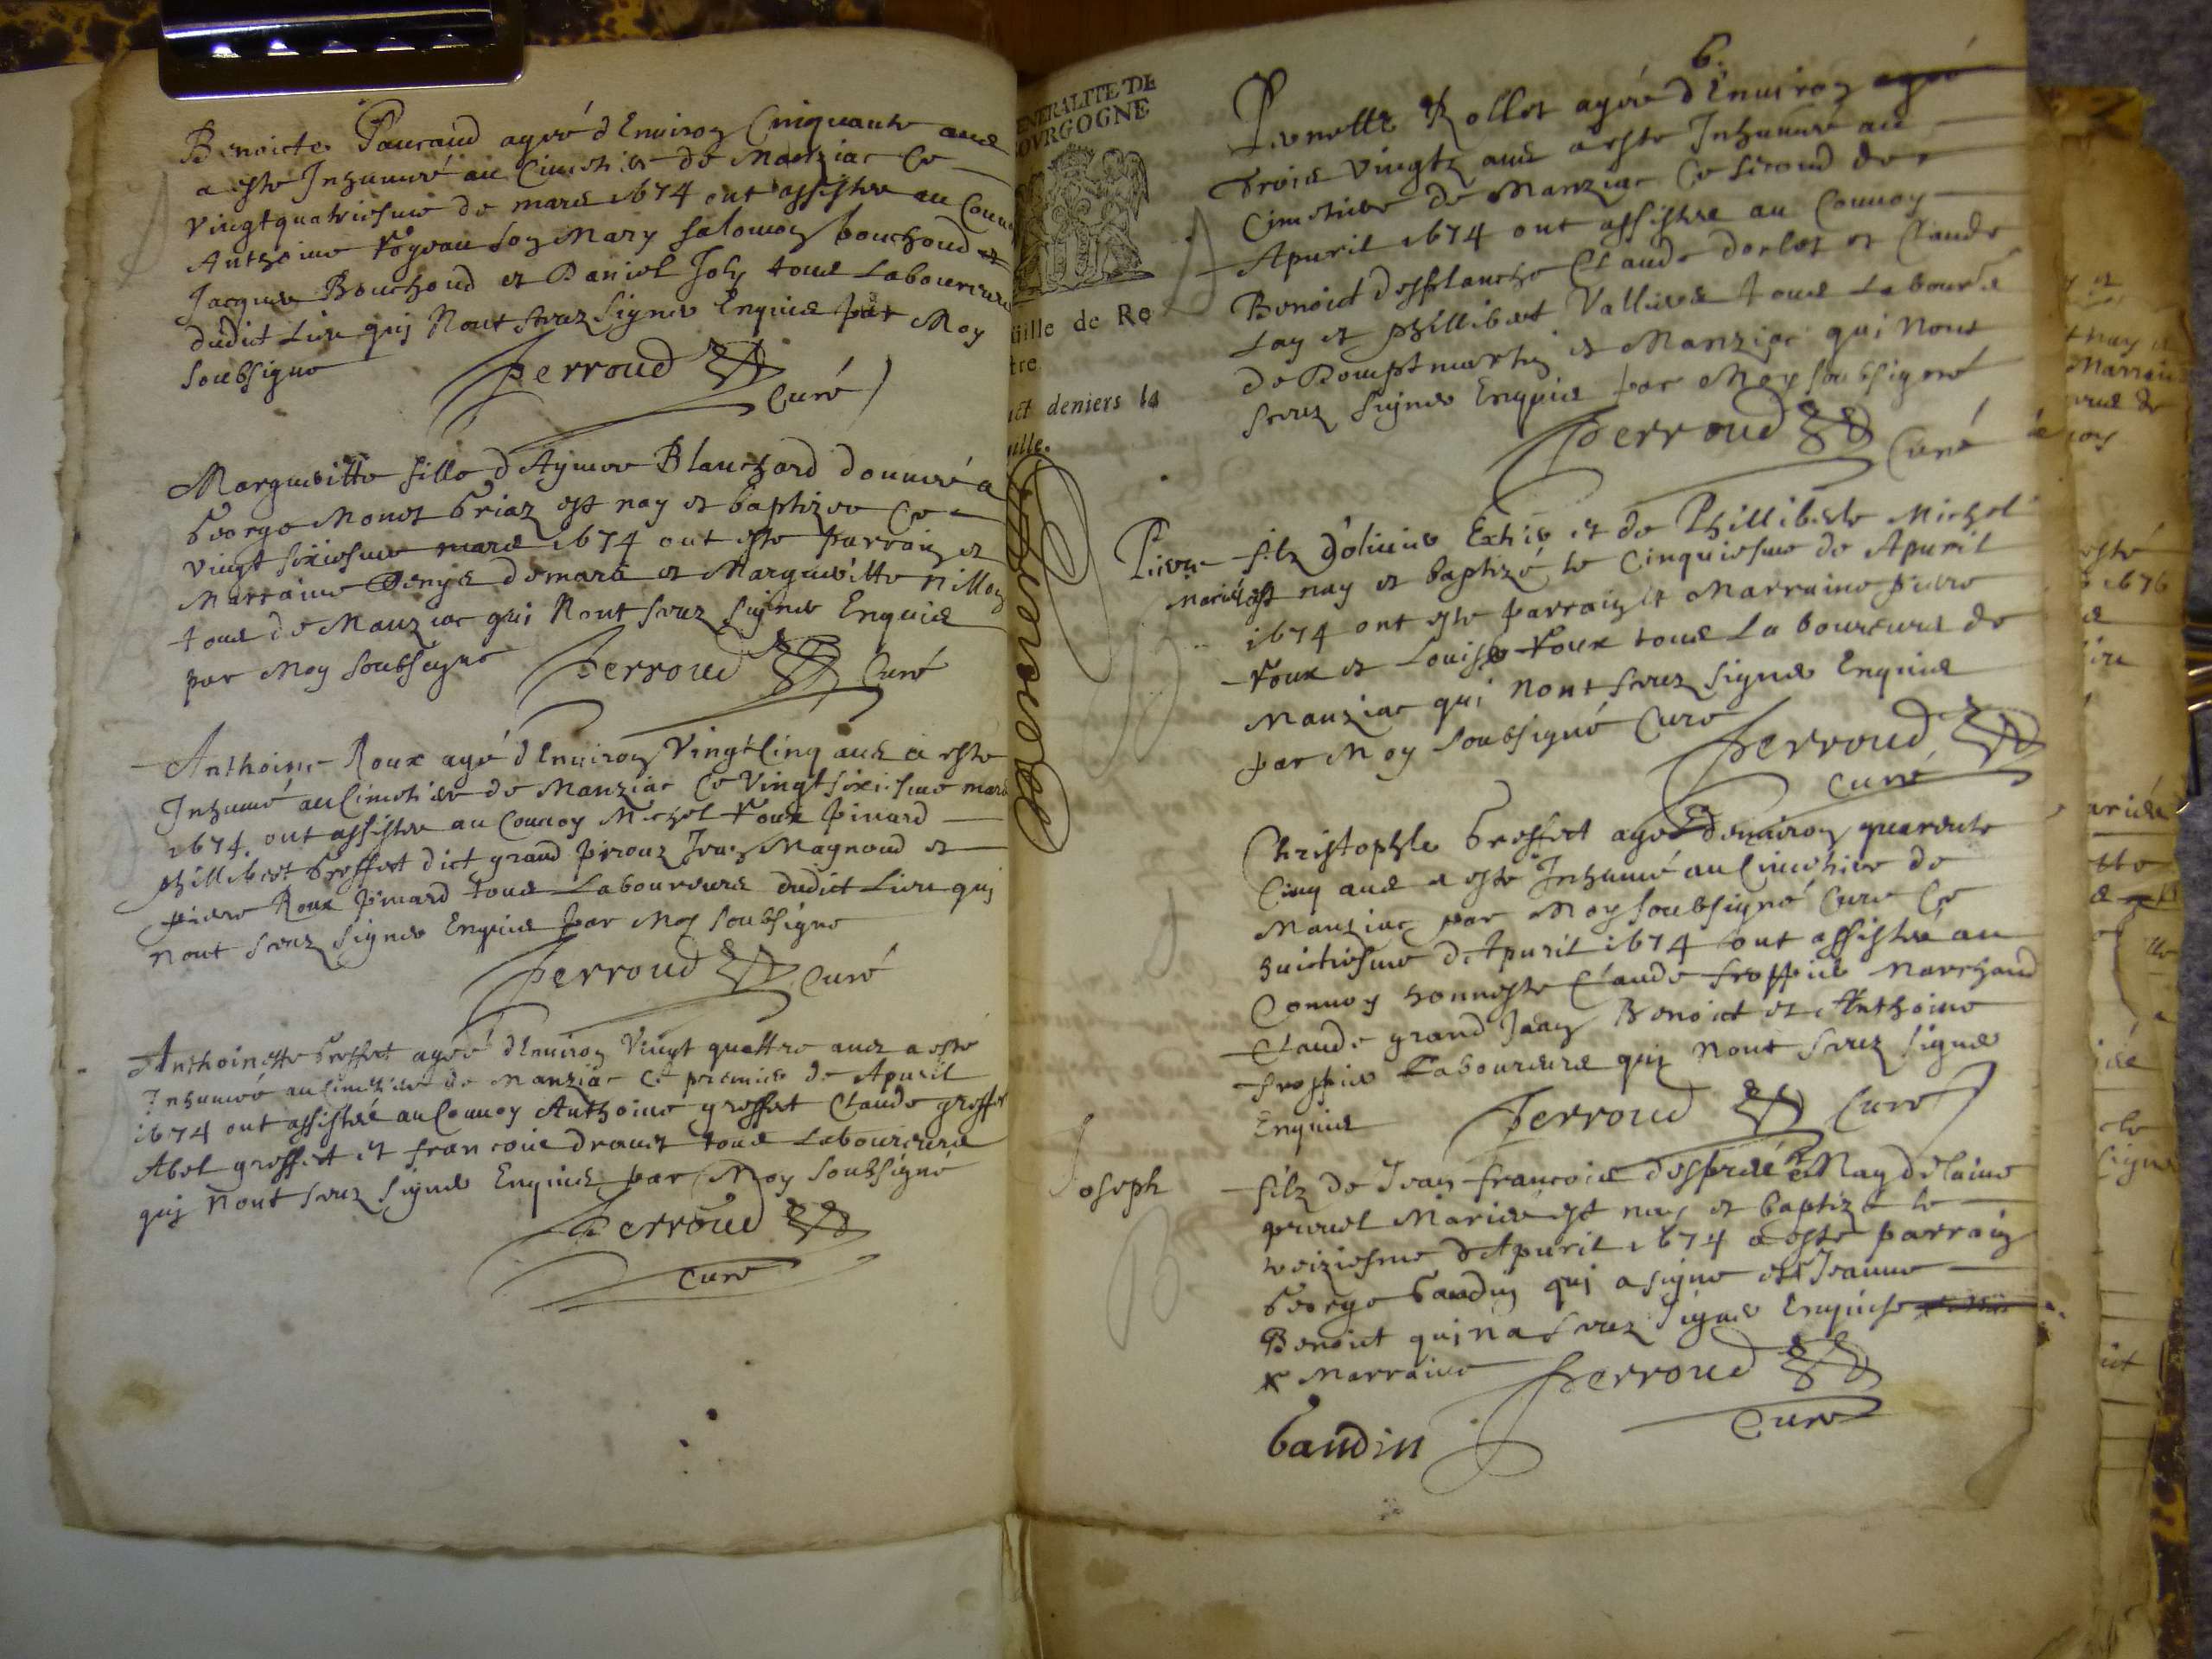 Benoicte Paucaud agée d'Enuiron Cinquante ans
a esté Inhumée au Cimetiere de Manziac Ce
vingtquatriesme de mars 1674 ont assistée au Conuoy
Anthoine son Mary salomon bouchoud et
Jacques Bouchoud et Daniel Joly tous Laboureurs
dudict Lieu quj Nont sceuz signer Enquis par Moy
soubsigne
Perroud Curé
Margueritte fille d'Aymee Blanchard donnée a
George Monet Griaz est nay et baptizee Ce
vingt sixiesme mars 1674 ont esté parrain et
Marraine Denys demars et Margueritte Nillon
tous de Manziac qui Nont sceuz signer Enquis
par Moy soubsigne Perroud Curé
Anthoine Roux agé d'Enuiron Vingtcinq ans a esté
Inhumé au Cimetiere de Manziac Ce Vingt sixiesme mars
1674. ont assistée au Conuoy Michel roux pinard
phillibert Greffet dict grand perrouz Jean Magnoud et
pierre Roux pinard tous Laboureurs dudict Lieu quj
nont sceuz signer Enquis par Moy soubsigne
Perroud Curé
Anthoinette Greffet agée d'Enuiron Vingt quattre ans a esté
Inhumée au Cimetiere de Manziac Ce premier de Apuril
1674 ont assistée au Conuoy Anthoine greffet Claude greffet
Abel greffet et francois drauet tous Laboureurs
quj Nont sceuz signer Enquis par Moy soubsigné
Perroud
Curé
6.
GENERALITE DE
BOVRGOGNE
deniers la
Pernette Rollet agée d'Enuiron agée
trois vingtz ans a esté Inhumée au
Cimetiere de Manziac Ce second de
Apuril 1674 ont assistée au Conuoy
Benoict desplanche Claude dorlet et Claude
Lay et phillibert Vallieres tous Laboure
de Dompmartin et Manziac qui Nont
sceuz signer Enquis par Moy soubsigné
Perroud Curé
Pierre filz d'oliuier Extier et de Philliberte Michel
Mariés est nay et baptizé le Cinquiesme de Apuril
1674 ont esté parrain et Marraine pierre
roux et Louise roux tous Laboureurs de
Manziac qui Nont sceuz signer Enquis
par Moy soubsigné Curé Perroud
Curé
Christophle Greffet agé d'enuiron quarente
Cinq ans a esté Inhumé au Cimetiere de
Manziac par Moy soubsigné Curé Ce
huictiesme d'Apuril 1674 ont assistée au
Conuoy honneste Claude froppier Marchand
Claude grand Jean Benoict et Anthoine
froppier Laboureurs quj Nont sceuz signer
Enquis Perroud Curé
Joseph filz de Jean francois després et Magdelaine
Mariés est nay et baptizé le
treiziesme d'Apuril 1674 a esté parrain
George Gaudin quj a signe et Jeanne
Benoict quj na sceuz signer Enquise
x Marraine Perroud
Curé
Gaudin